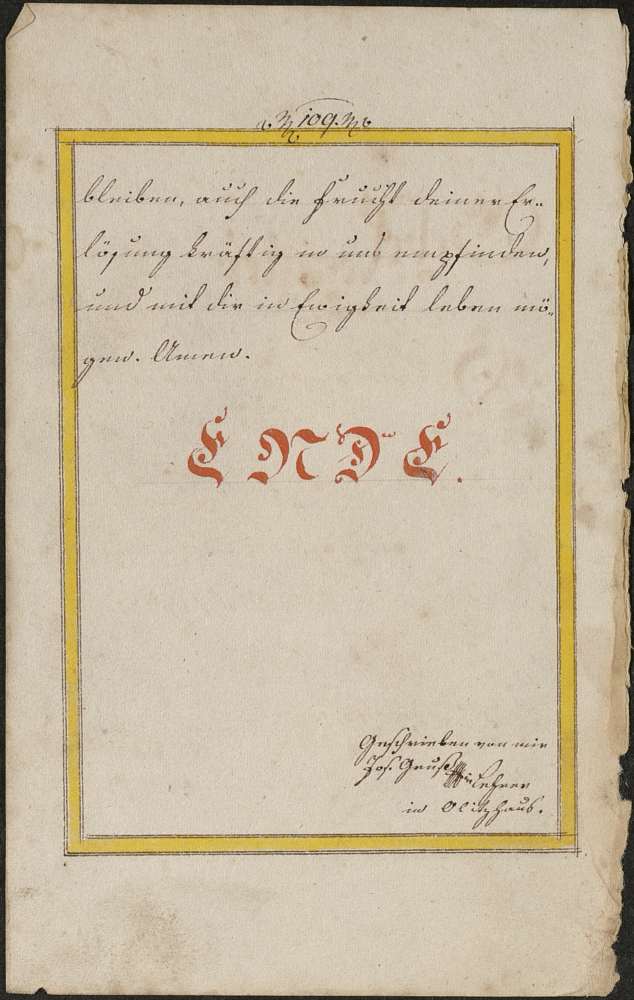 109.
bleiben, auch die Frucht deiner Er-
lösung kräftig in uns empfinden,
und mit dir in Ewigkeit leben mö-
gen. Amen.
ENDE.
Geschrieben von mir
Jos.
Lehrer
in